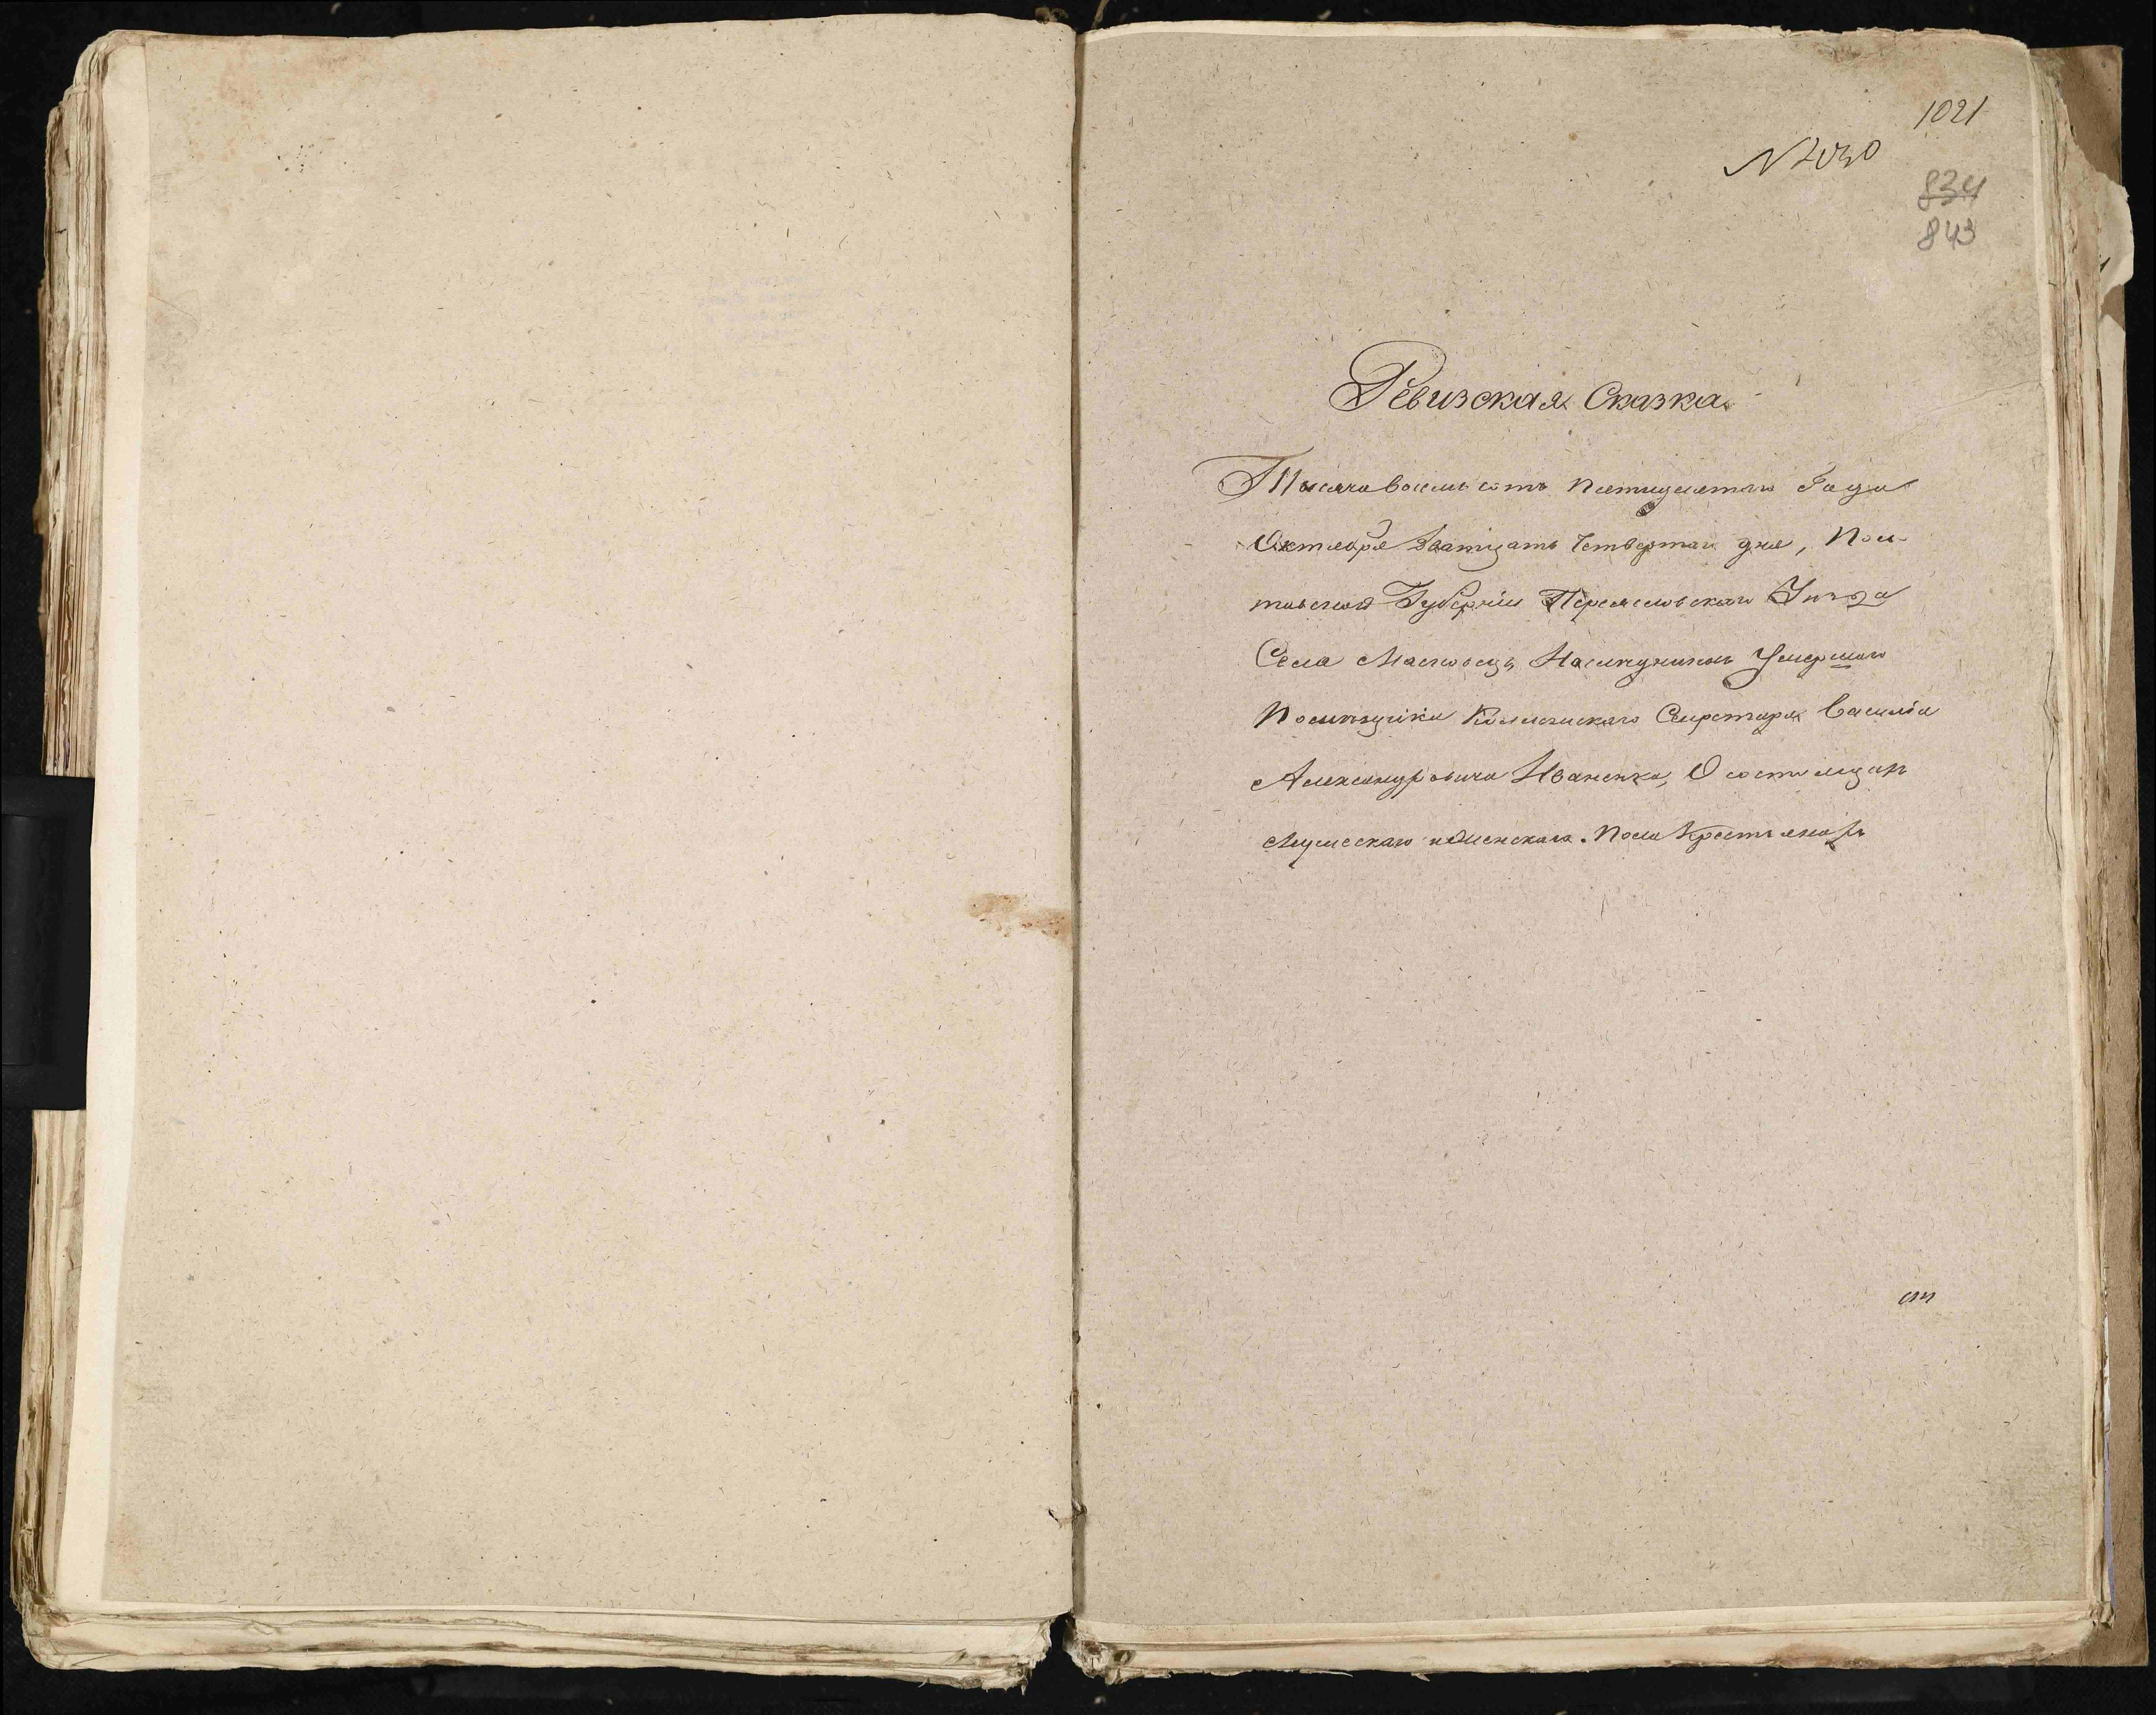 1021
N 2030
834
843
Ревизская Сказка
Тысяча восемь сотъ пятидесятаго Года
Октября дватцать Четвертаго дня, Пол-
тавской Губерніи Переяславскаго Уѣзда
Села Масковецъ Наслѣдниковъ Умершаго
Помѣщика Колежскаго Секретаря Василіа
Александровича Иваненка, О состоящихъ
Мужескаго и Женскаго Пола Крестьянахъ